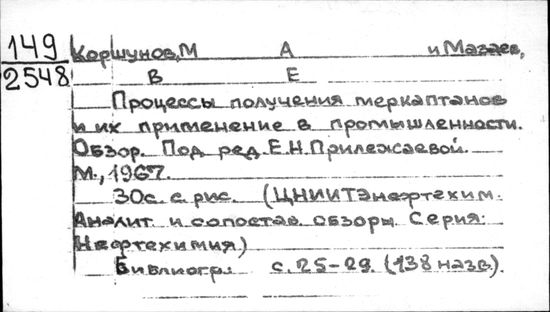 149
2548
Коршунов, М А и Мазаев,
В Е
Процессы получения меркаптанов
и их применение в промышленности.
Обзор. Под ред. Е.Н.Прилежаевой.
М., 1967.
30с. с рис. (ЦНИИТЭнефтехим.
Аналит. и сопостав. обзоры. Серия:
Нефтехимия.)
Библиогр. с. 25-29. (138 назв.).